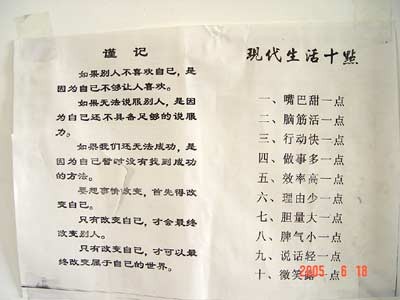 谨记
如果别人不喜欢自己，是
因为自己不够让人喜欢。
如果无法说服别人，是因
为自己还不具备足够的说服
力。
如果我们还无法成功，是
因为自己暂时没有找到成功
的方法。
要想事情改变，首先得改
变自己。
只有改变自己，才会最终
改变别人。
只有改变自己，才可以最
终改变属于自己的世界。
现代生活十點
一、嘴巴甜一点
二、脑筋活一点
三、行动快一点
四、做事多一点
五、效率高一点
六、理由少一点
七、胆量大一点
八、脾气小一点
九、说话轻一点
十、微笑露一点
2005 6 18